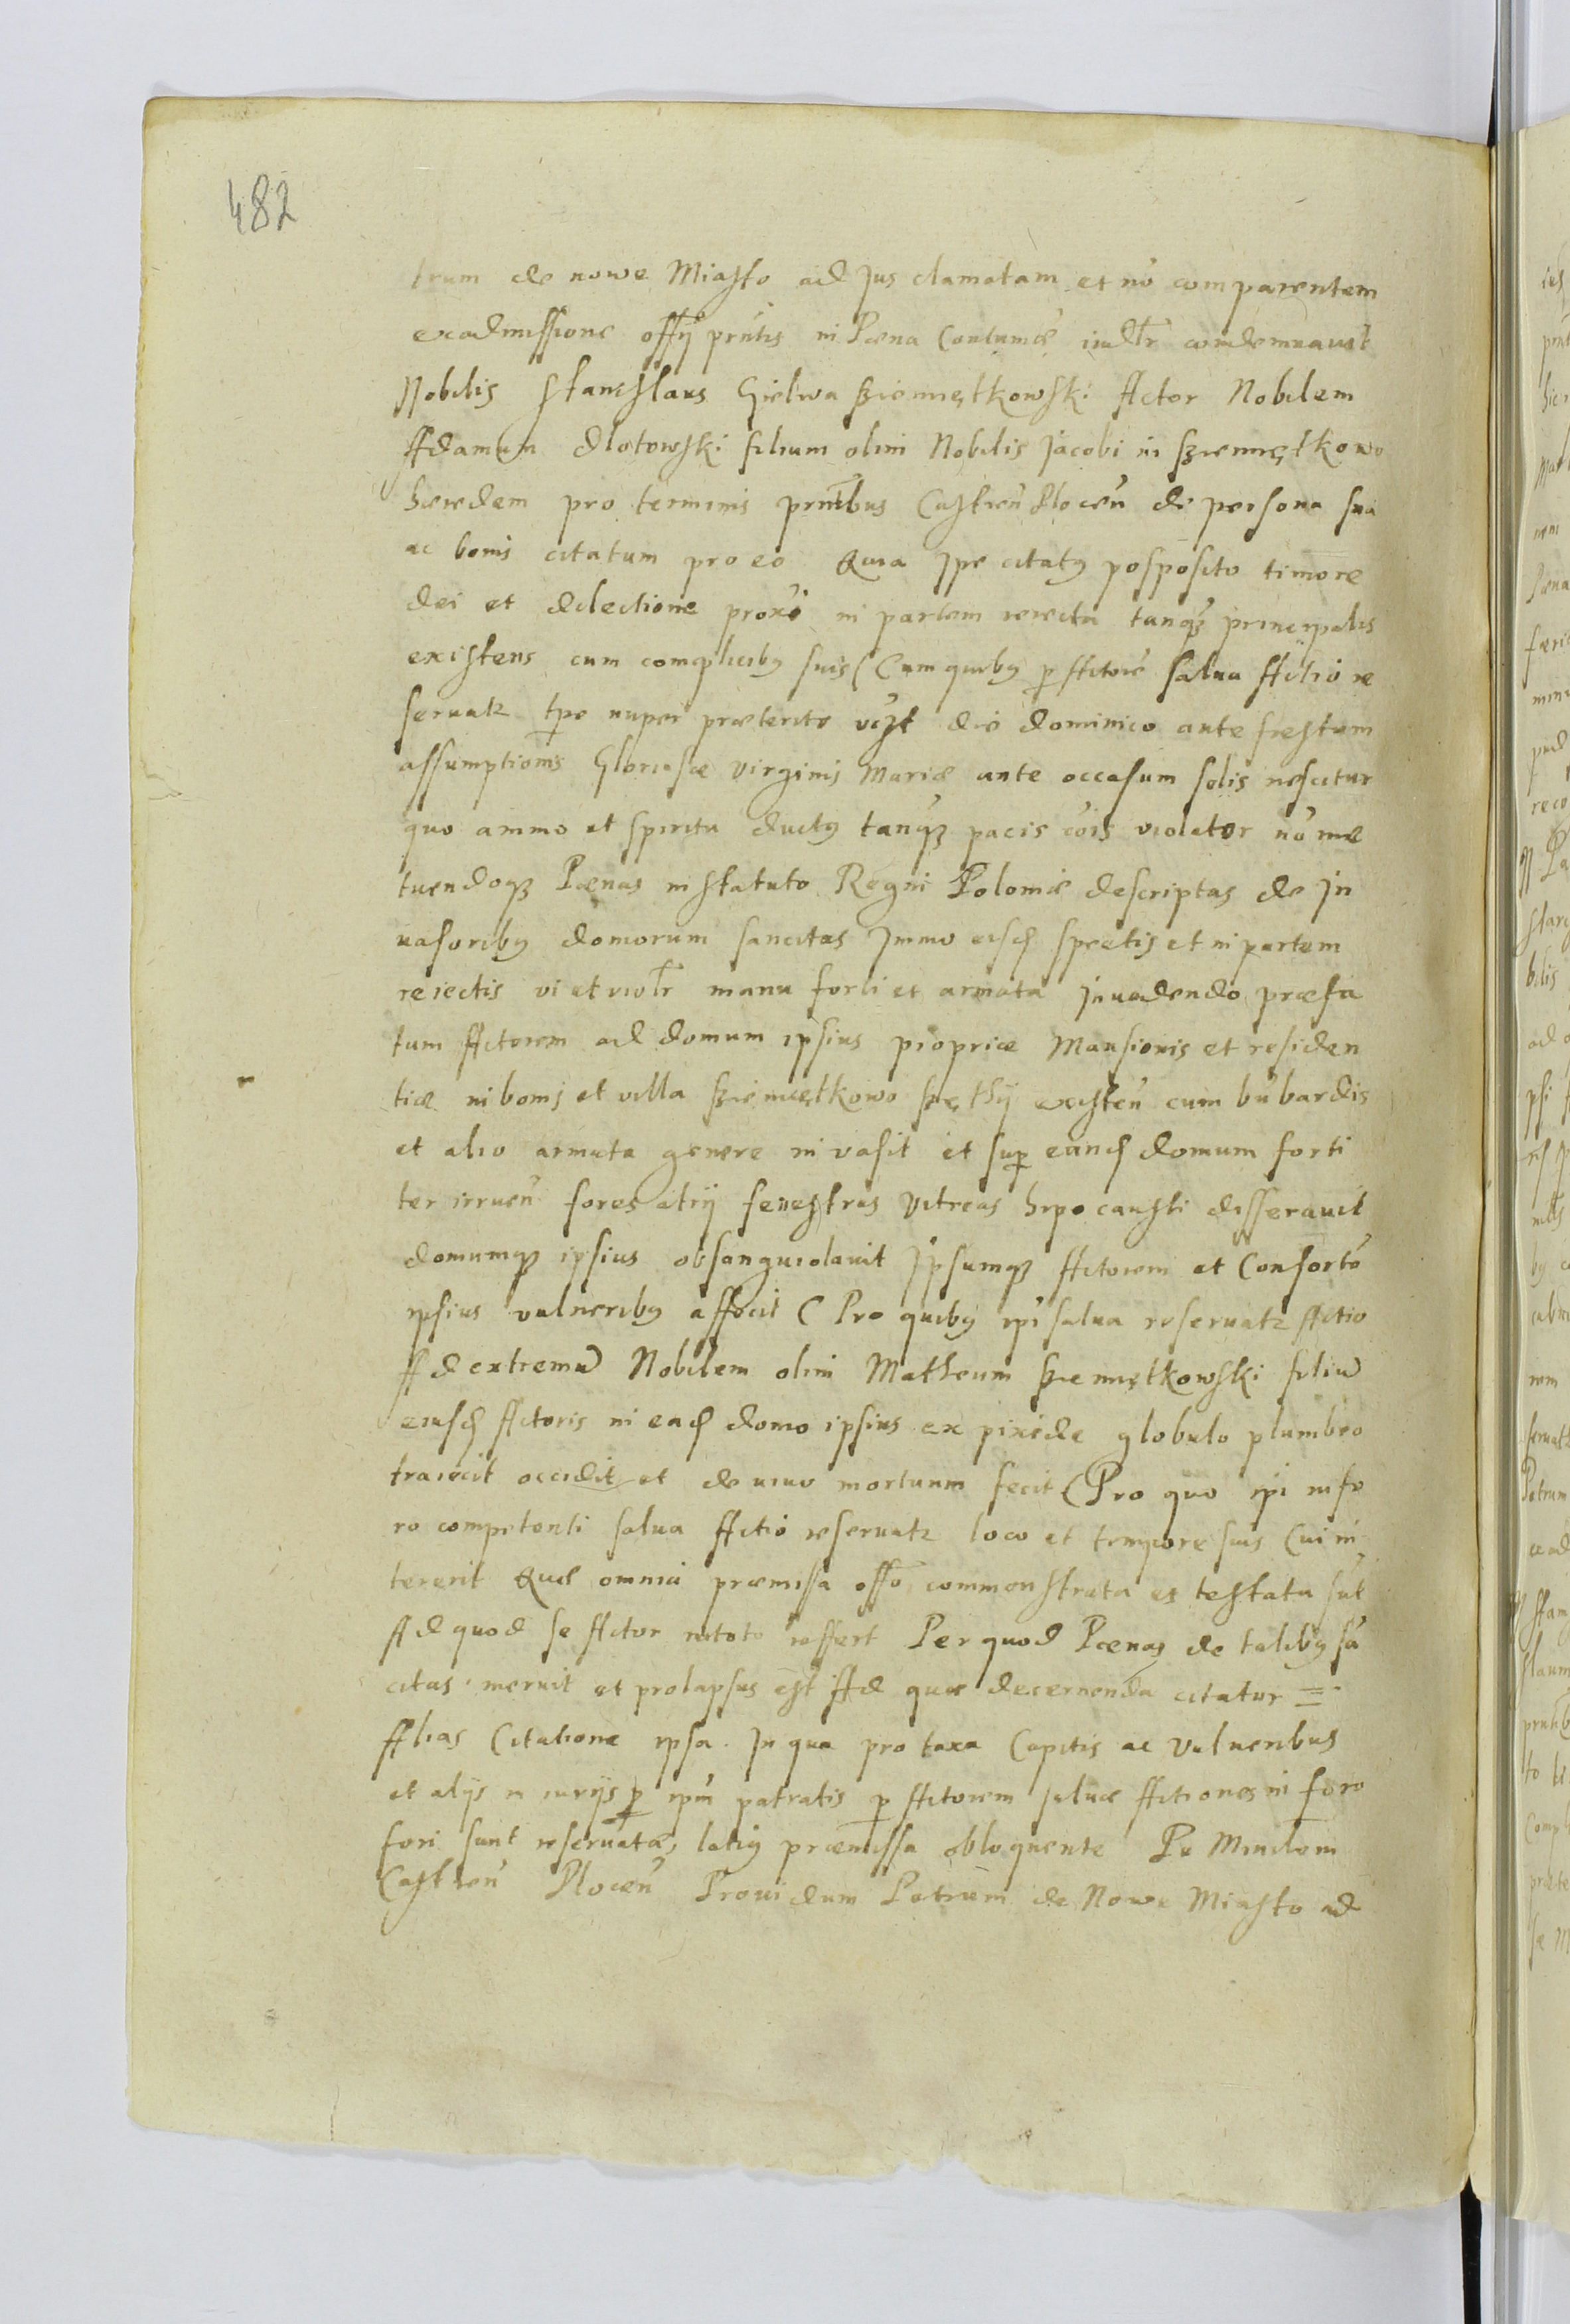 482
trum de nowe Miasto ad Jus clamatam et nō comparentem
ex admissione offÿ prntis in Pæna Contumãe iudlr condemnauit
Nobilis Stanislaus Gielwa Sziemiętkowski Actor Nobilem
Adamum Dlotowski filium olim Nobilis Jacobi in Sziemiętkowo
hæredem pro terminis prntibus Castreñ Ploceñ de persona sua
ac bonis citatum pro eo Quia Ipse citatq posposito timore
dei et dilectione proxi in partem reiecta tanqz principalis
existens cum complicibq suis (Cum quibq p Actore salua Actio re
seruatz tpe nuper præterito vizt die dominico ante fiestum
assumptionis Gloriosæ virginis Mariæ ante occasum solis nescitur
quo animo et spiritu ductq tanqz pacis cōis violator nō me
tuendoqz Pænas in statuto Regni Poloniæ descriptas de In
uasoribq domorum sancitas Immo eisd spretis et in partem
reiectis vi et violr manu forti et armata Inuadendo præfa
tum Actorem ad domum ipsius propriæ Mansionis et residen
tiæ in bonis et villa Sziemiętkowo existeñ cum būbardis
et alio armata genere in vasit et sup eand domum forti
ter irrueñ fores atrÿ fenestras vitreas hipocausti disserauit
domumqz ipsius obsanguiolauit Ipsumqz Actorem et Consortē
ipsius vulneribq affecit (Pro quibq ipi salua reseruatz Actio
Ad extremū Nobilem olim Matheum Sziemiętkowski filiū
eiusd Actoris in ead domo ipsius ex pixide globulo plumbeo
traiecit occidit et de viuo mortuum fecit (Pro quo ipi in fo
ro competenti salua Actio reseruatz loco et tempore suis Cui in
tererit Quæ omnia præmissa offo commonstrata et testata sūt
Ad quod se Actor in toto reffert Per quod Pænas de talibq sā
citas meruit et prolapsus est Ad quæ decernenda citatur =
Alias Citatione ipsa. In qua pro taxa Capitis ac vulneribus
et alÿs in iurÿs p ipm patratis p Actorem saluæ Actiones in foro
fori sunt reseruatæ, latiq præmissa obloquente Pr Minilem
Castreñ Ploceñ Prouidum Petrum de Nowe Miasto ad